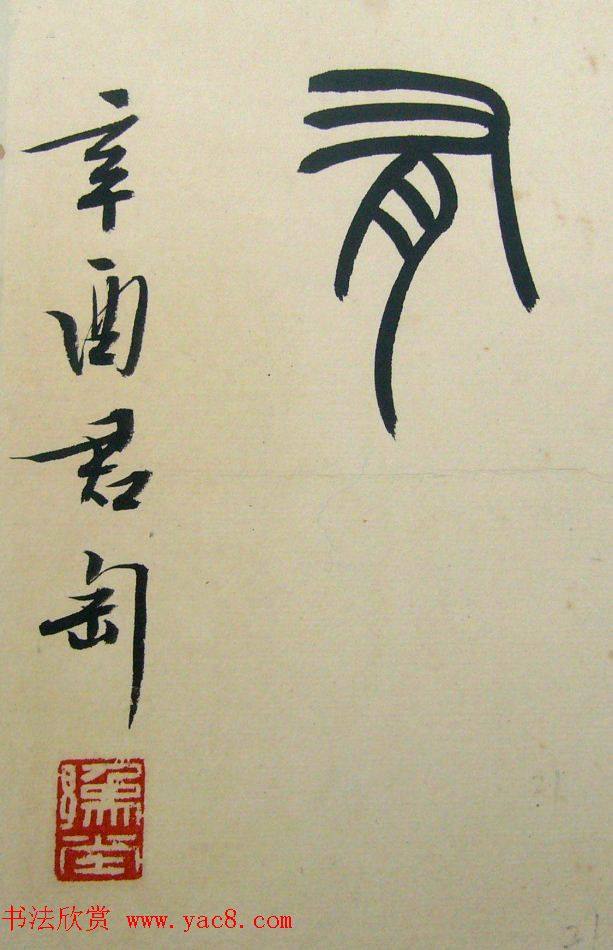 有
辛酉君匋
豫堂
书法欣赏 www.yac8.com
21